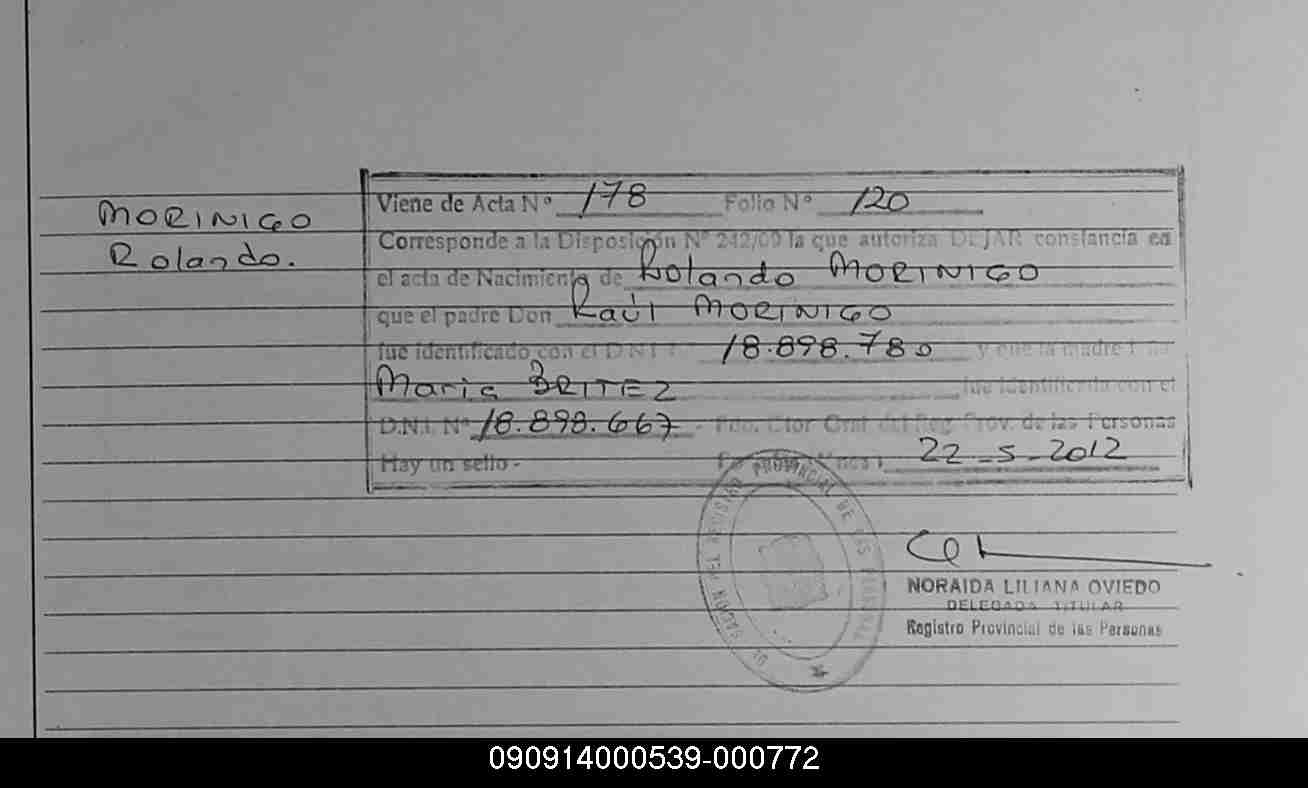 MORINIGO
Rolando.
Viene de Acta Nº 178 Folio Nº 120
Corresponde a la Disposición Nº 242/09 la que autoriza DEJAR constancia en
el acta de Nacimiento de Rolando MORINIGO
que el padre Don Raúl MORINIGO
fue identificado con el DNI 18.898.780 y que la madre
Maria BRITEZ fue identificada con el
D.N.I. Nº 18.898.667 - Fdo. Dtor Gral del Reg Prov. de las Personas
Hay un sello - 22-5-2012
REGISTRO PROVINCIAL DE LAS PERSONAS
NORAIDA LILIANA OVIEDO
DELEGADA TITULAR
Registro Provincial de las Personas
090914000539-000772